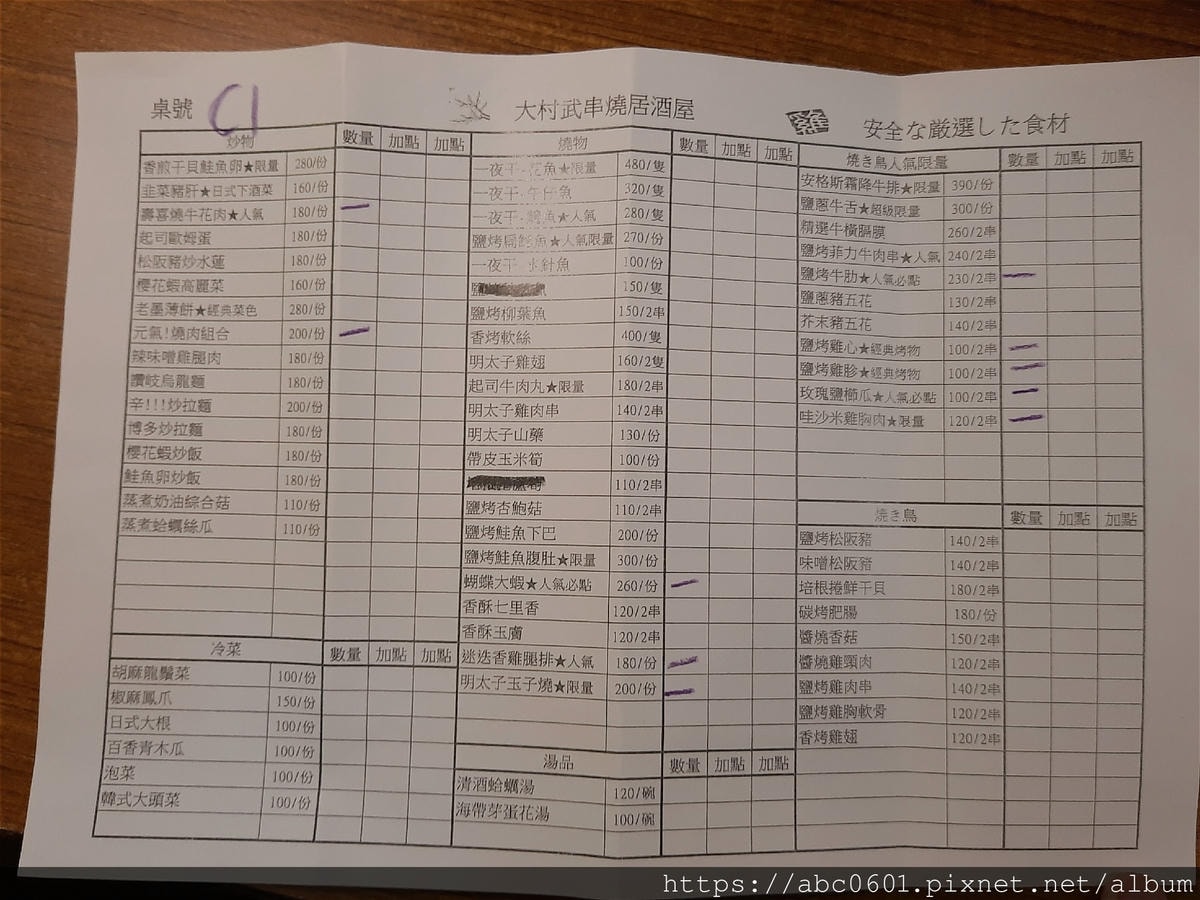 桌號 C1
大村武串燒居酒屋
安全な厳選した食材
炒物 數量 加點 加點
香煎干貝鮭魚卵★限量 280/份
韭菜豬肝★日式下酒菜 160/份
壽喜燒牛花肉★人氣 180/份 一
起司歐姆蛋 180/份
松阪豬炒水蓮 180/份
櫻花蝦高麗菜 160/份
老墨薄餅★經典菜色 280/份
元氣!燒肉組合 200/份 一
辣味噌雞腿肉 180/份
讚岐烏龍麵 180/份
辛!!!炒拉麵 200/份
博多炒拉麵 180/份
櫻花蝦炒飯 180/份
鮭魚卵炒飯 180/份
蒸煮奶油綜合菇 110/份
蒸煮蛤蠣絲瓜 110/份
冷菜 數量 加點 加點
胡麻龍鬚菜 100/份
椒麻鳳爪 150/份
日式大根 100/份
百香青木瓜 100/份
泡菜 100/份
韓式大頭菜 100/份
燒物 數量 加點 加點
一夜干.花魚★限量 480/隻
一夜干.午仔魚 320/隻
一夜干.魚★人氣 280/隻
鹽烤扁鱈魚★人氣限量 270/份
一夜干.水針魚 100/份
鹽 150/隻
鹽烤柳葉魚 150/2串
香烤軟絲 400/隻
明太子雞翅 160/2隻
起司牛肉丸★限量 180/2串
明太子雞肉串 140/2串
明太子山藥 130/份
帶皮玉米筍 100/份
110/2串
鹽烤杏鮑菇 110/2串
鹽烤鮭魚下巴 200/份
鹽烤鮭魚腹肚★限量 300/份
蝴蝶大蝦★人氣必點 260/份 一
香酥七里香 120/2串
香酥玉膚 120/2串
迷迭香雞腿排★人氣 180/份 一
明太子玉子燒★限量 200/份 一
湯品 數量 加點 加點
清酒蛤蠣湯 120/碗
海帶芽蛋花湯 100/碗
燒き鳥人氣限量 數量 加點 加點
安格斯霜降牛排★限量 390/份
鹽蔥牛舌★超級限量 300/份
精選牛橫膈膜 260/2串
鹽烤菲力牛肉串★人氣 240/2串
鹽烤牛肋★人氣必點 230/2串 一
鹽蔥豬五花 130/2串
芥末豬五花 140/2串
鹽烤雞心★經典烤物 100/2串 一
鹽烤雞胗★經典烤物 100/2串 一
玫瑰鹽櫛瓜★人氣必點 100/2串 一
哇沙米雞胸肉★限量 120/2串 一
燒き鳥 數量 加點 加點
鹽烤松阪豬 140/2串
味噌松阪豬 140/2串
培根捲鮮干貝 180/2串
碳烤肥腸 180/份
醬燒香菇 150/2串
醬燒雞頸肉 120/2串
鹽烤雞肉串 140/2串
鹽烤雞胸軟骨 120/2串
香烤雞翅 120/2串
https://abc0601.pixnet.net/album